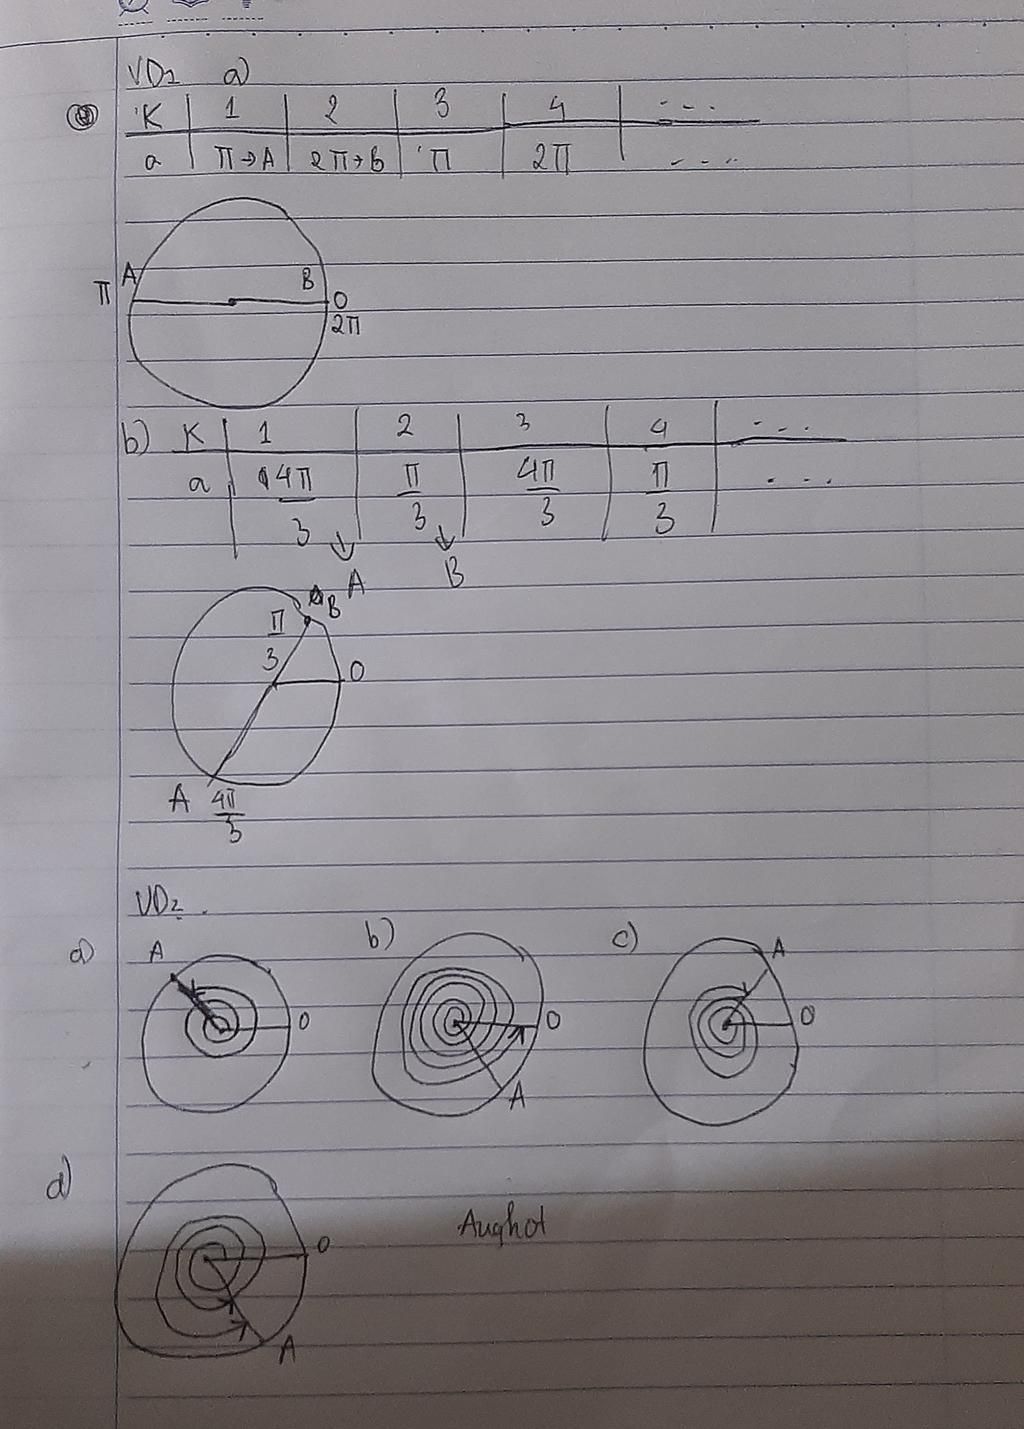 VD1 a)
K 1 2 3 4 ...
a π→A 2π→B π 2π ....
A B
π O
2π
b) K 1 2 3 4 ...
a 4π/3 π/3 4π/3 π/3 ...
↓ A ↓ B
B
π/3
O
A 4π/3
VD2.
a) A O b) O A c) A O
d) O A